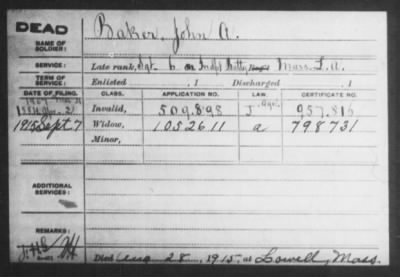 DEAD
NAME OF SOLDIER: Baker, John A.
SERVICE: Late rank, Sgt. 6 Indpt Batty, Mass. L. A.
TERM OF SERVICE: Enlisted , 1 Discharged , 1
DATE OF FILING. CLASS. APPLICATION NO. LAW. CERTIFICATE NO.
Invalid, 509.898 J 957.816
1915 Sept. 7 Widow, 1052611 a 798731
Minor,
ADDITIONAL SERVICES:
REMARKS:
Died Aug 28, 1915, at Lowell, Mass.